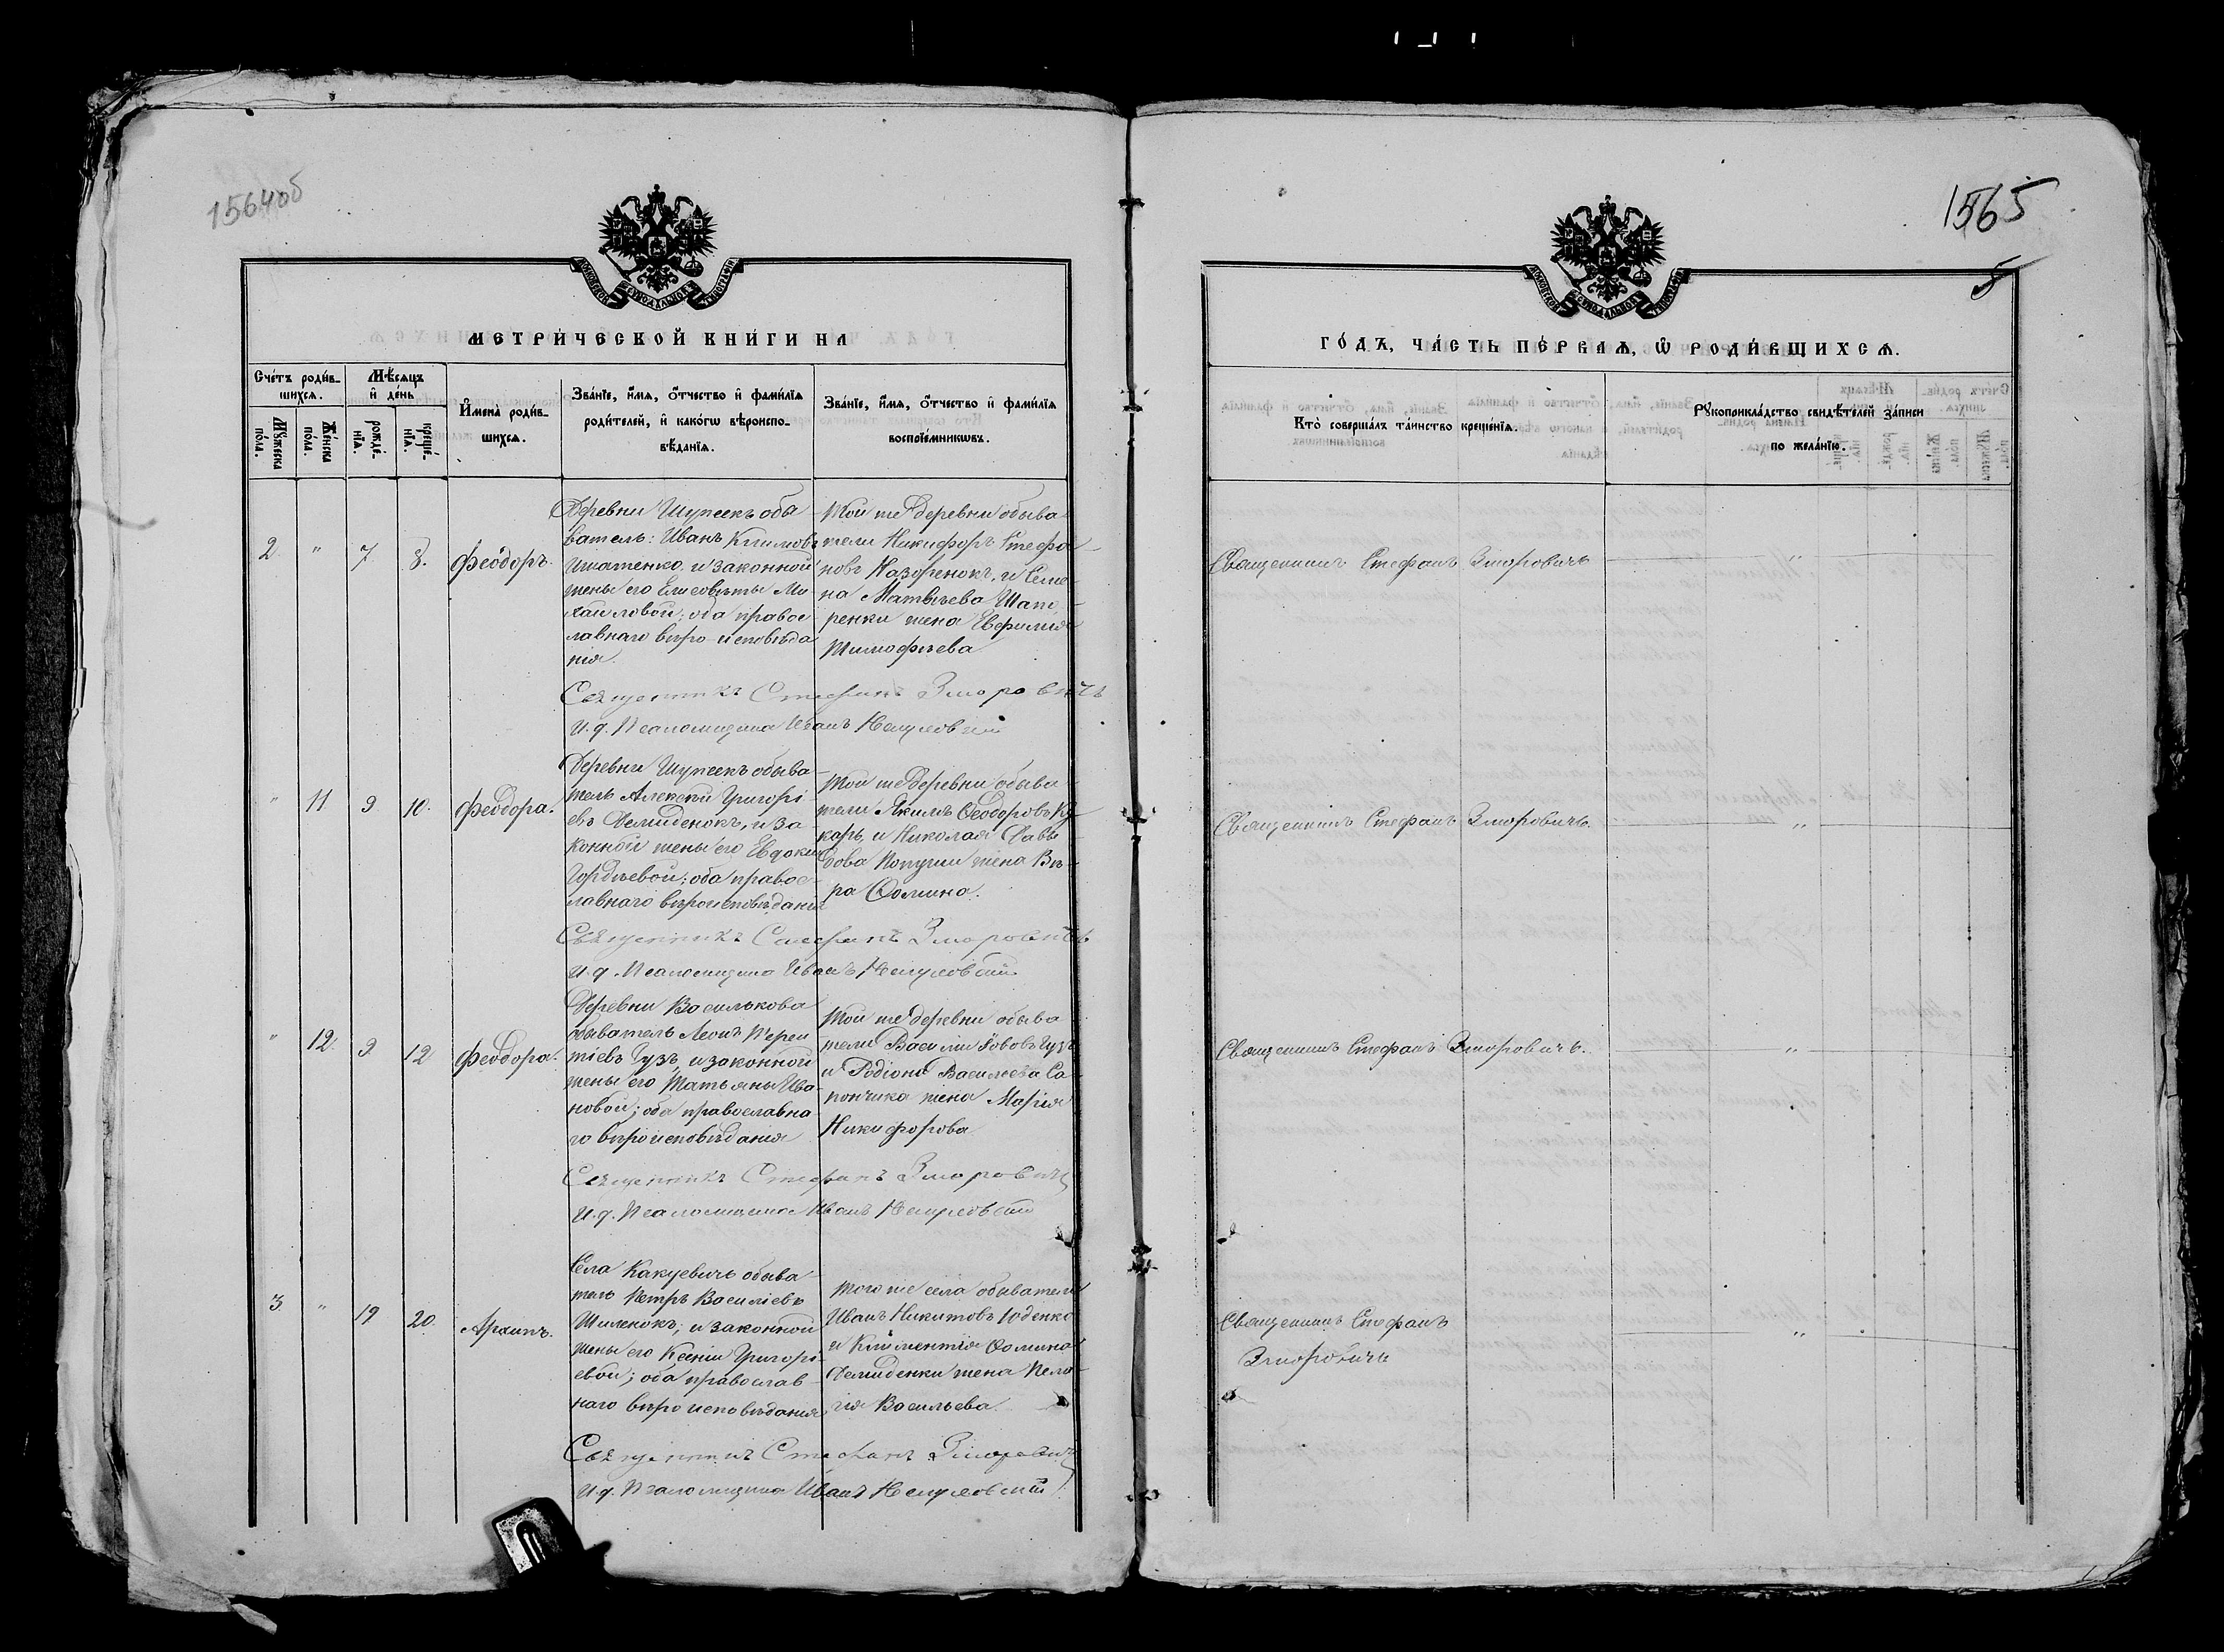 1564об
МОСКОВСКОЙ СѴНОДАЛЬНОЙ ТИПОГРАФІИ
МЕТРИ́ЧЕСКОЙ КНИ́ГИ НА
Сче́тъ роди́в-
шихсѧ.
Мѣ́сѧцъ
и҆ де́нь
Мꙋ́жеска
по́ла.
Же́нска
по́ла.
рожде́-
нїѧ.
креще́-
нїѧ.
И҆мена̀ роди́в-
шихсѧ.
Зва́нїе, и҆́мѧ, ѻ҆́тчество и҆ фами́лїѧ
роди́телей, и҆ како́гѡ вѣроиспо-
вѣ́данїѧ.
Зва́нїе, и҆́мѧ, ѻ҆́тчество и҆ фами́лїѧ
воспрїе́мниковъ.
2 " 7 8. Ѳеодоръ.
Деревни Шупеекъ обы
ватель: Иванъ Климовъ
Игнатенко и законной
жены его Елисоветы Ми-
хаиловой; оба правос-
лавнаго вѣро-исповѣда
нія.
Той же деревни обыва-
тели Никифоръ Стефа-
новъ Назоренокъ, и Семе-
на Матвѣева Шапо-
ренки жена Евфимія
Тимофѣева
Священникъ Стефанъ Зморовичъ
И. д. Псаломщика Иванъ
" 11 9 10. Ѳеодора.
Деревни Шупеекъ обыва-
тель Алексѣй Григорі-
евъ Демиденокъ, и за-
конной жены его Евдокіи
Гордѣевой; оба правос-
лавнаго вѣроисповѣданія
Той же деревни обыва
тели Якимъ Ѳеодоровъ Ку-
карь, и Николая Давы
дова жена Вѣ-
ра Ѳомина.
Священникъ Стефанъ Зморовичъ
И. д. Псаломщика Иванъ
" 12. 9 12 Ѳеодора.
Деревни Василькова
обыватель Леонъ Терен
тіевъ Гузь, и законной
жены его Татьяны Ива-
новой; оба православна
го вѣроисповѣданія
Той же деревни обыва
тели Василій Іововъ Гузь
и Родіона Васильева Са-
пончика жена Марія
Никифорова
Священникъ Стефанъ Зморовичъ
И. д. Псаломщика Иванъ
3 " 19 20. Архипъ.
Села Какуевичъ обыва-
тель Петръ Василіевъ
Шиленокъ; и законной
жены его Ксеніи Григорі-
евой; оба православ-
наго вѣроисповѣданія
Того же села обыватели
Иванъ Никитовъ Юденко
и Климентія Ѳомина
Демиденки жена Пела-
гія Васильева.
Священникъ Стефанъ Зморовичъ
И. д. Псаломщика Иванъ
1565
5
МОСКОВСКОЙ СѴНОДАЛЬНОЙ ТИПОГРАФІИ
ГО́ДЪ, ЧА́СТЬ ПЕ́РВАѦ, Ѡ҆ РОДИ́ВШИХСѦ.
Кто̀ соверша́лъ та́инство креще́нїѧ.
Рꙋкоприкла́дство свидѣ́телей за́писи
по жела́нїю.
Священникъ Стефанъ Зморовичъ "
Священникъ Стефанъ Зморовичъ. "
Священникъ Стефанъ Зморовичъ. "
Священникъ Стефанъ
Зморовичъ "